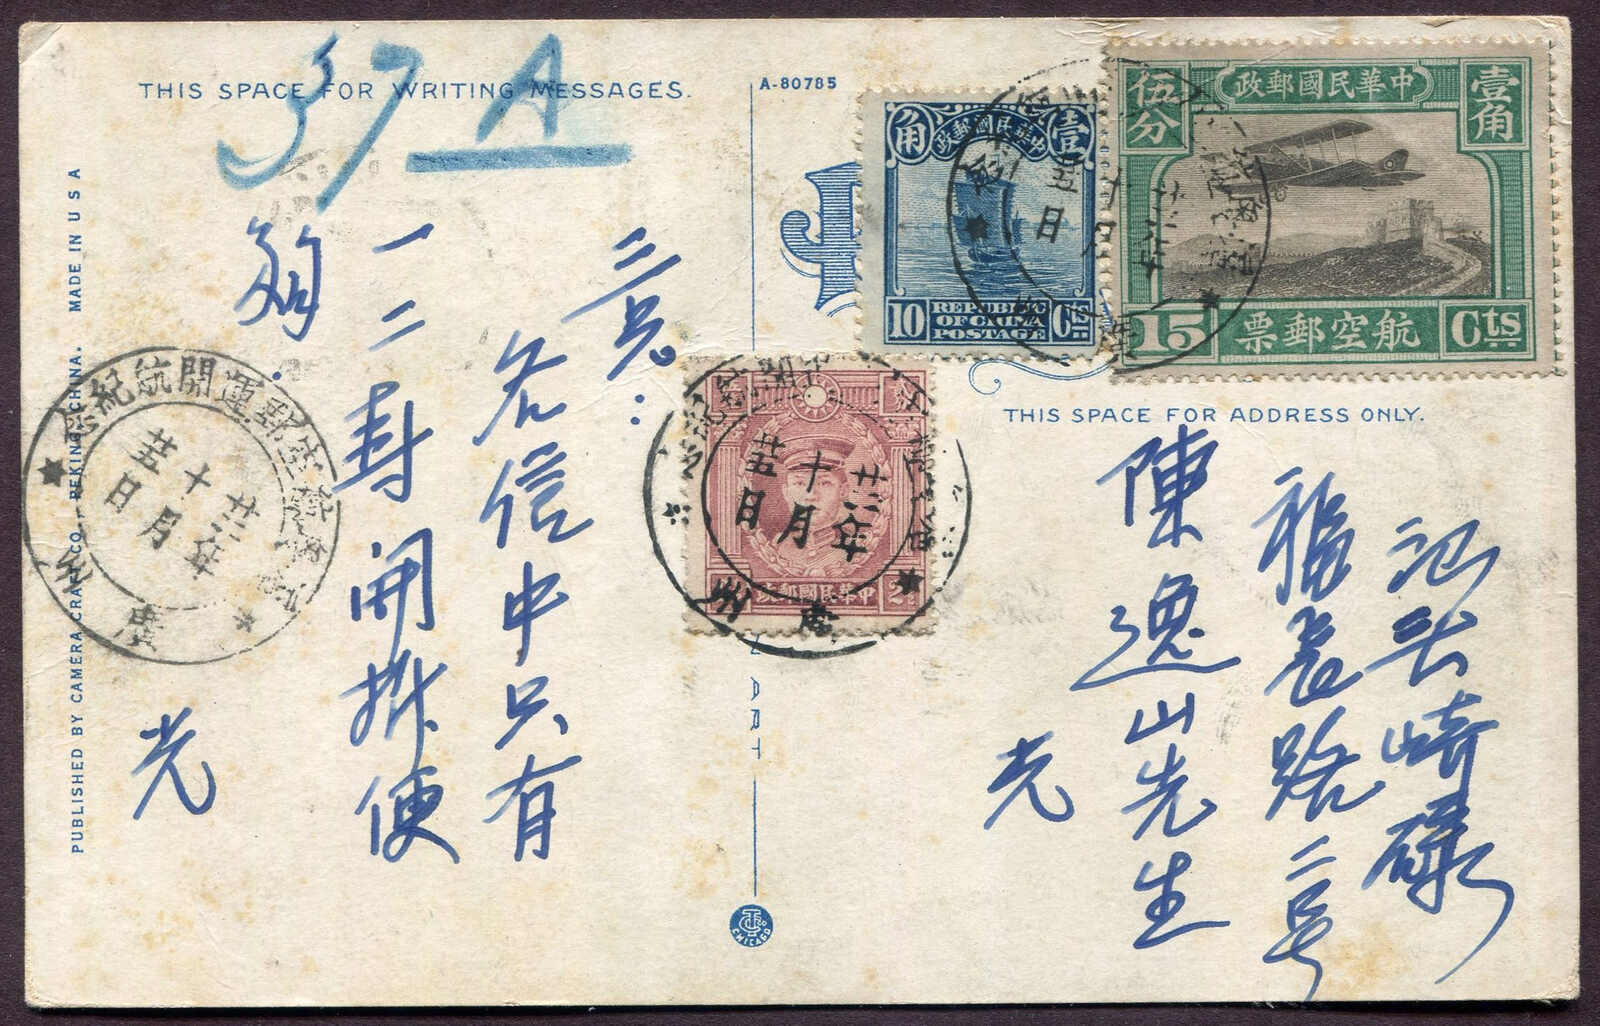 THIS SPACE FOR WRITING MESSAGES.
A-80785
37 A
三兄:
各信中只有
一二封開拆便
夠.
光
PUBLISHED BY CAMERA CRAFT CO., PEKING, CHINA. MADE IN U S A
角 壹
中華民國郵政
10 REPUBLIC OF CHINA POSTAGE Cts
壹角 中華民國郵政 伍分
15 航空郵票 Cts
中華民國郵政
2
THIS SPACE FOR ADDRESS ONLY.
汕頭崎碌
福長路二号
陳逸山先生
光
航空郵運開航紀念
廿六年
十月
廿五日
廣州
廿六年
十月
廿五日
廣州
ART
CHICAGO